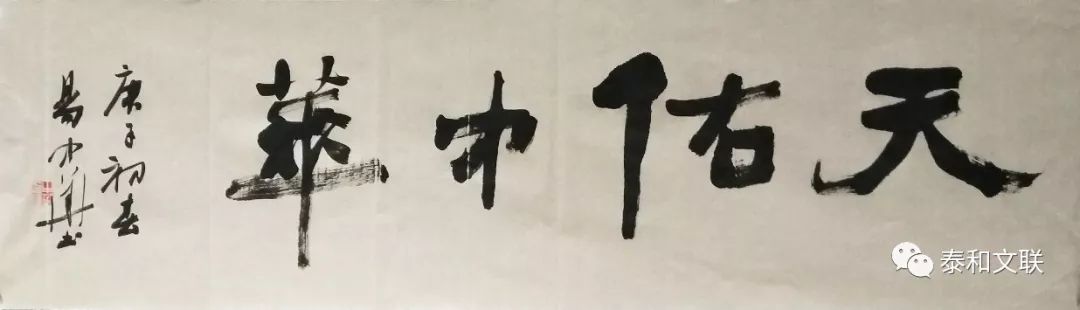 天佑中華
庚子初春
易小華书
泰和文联